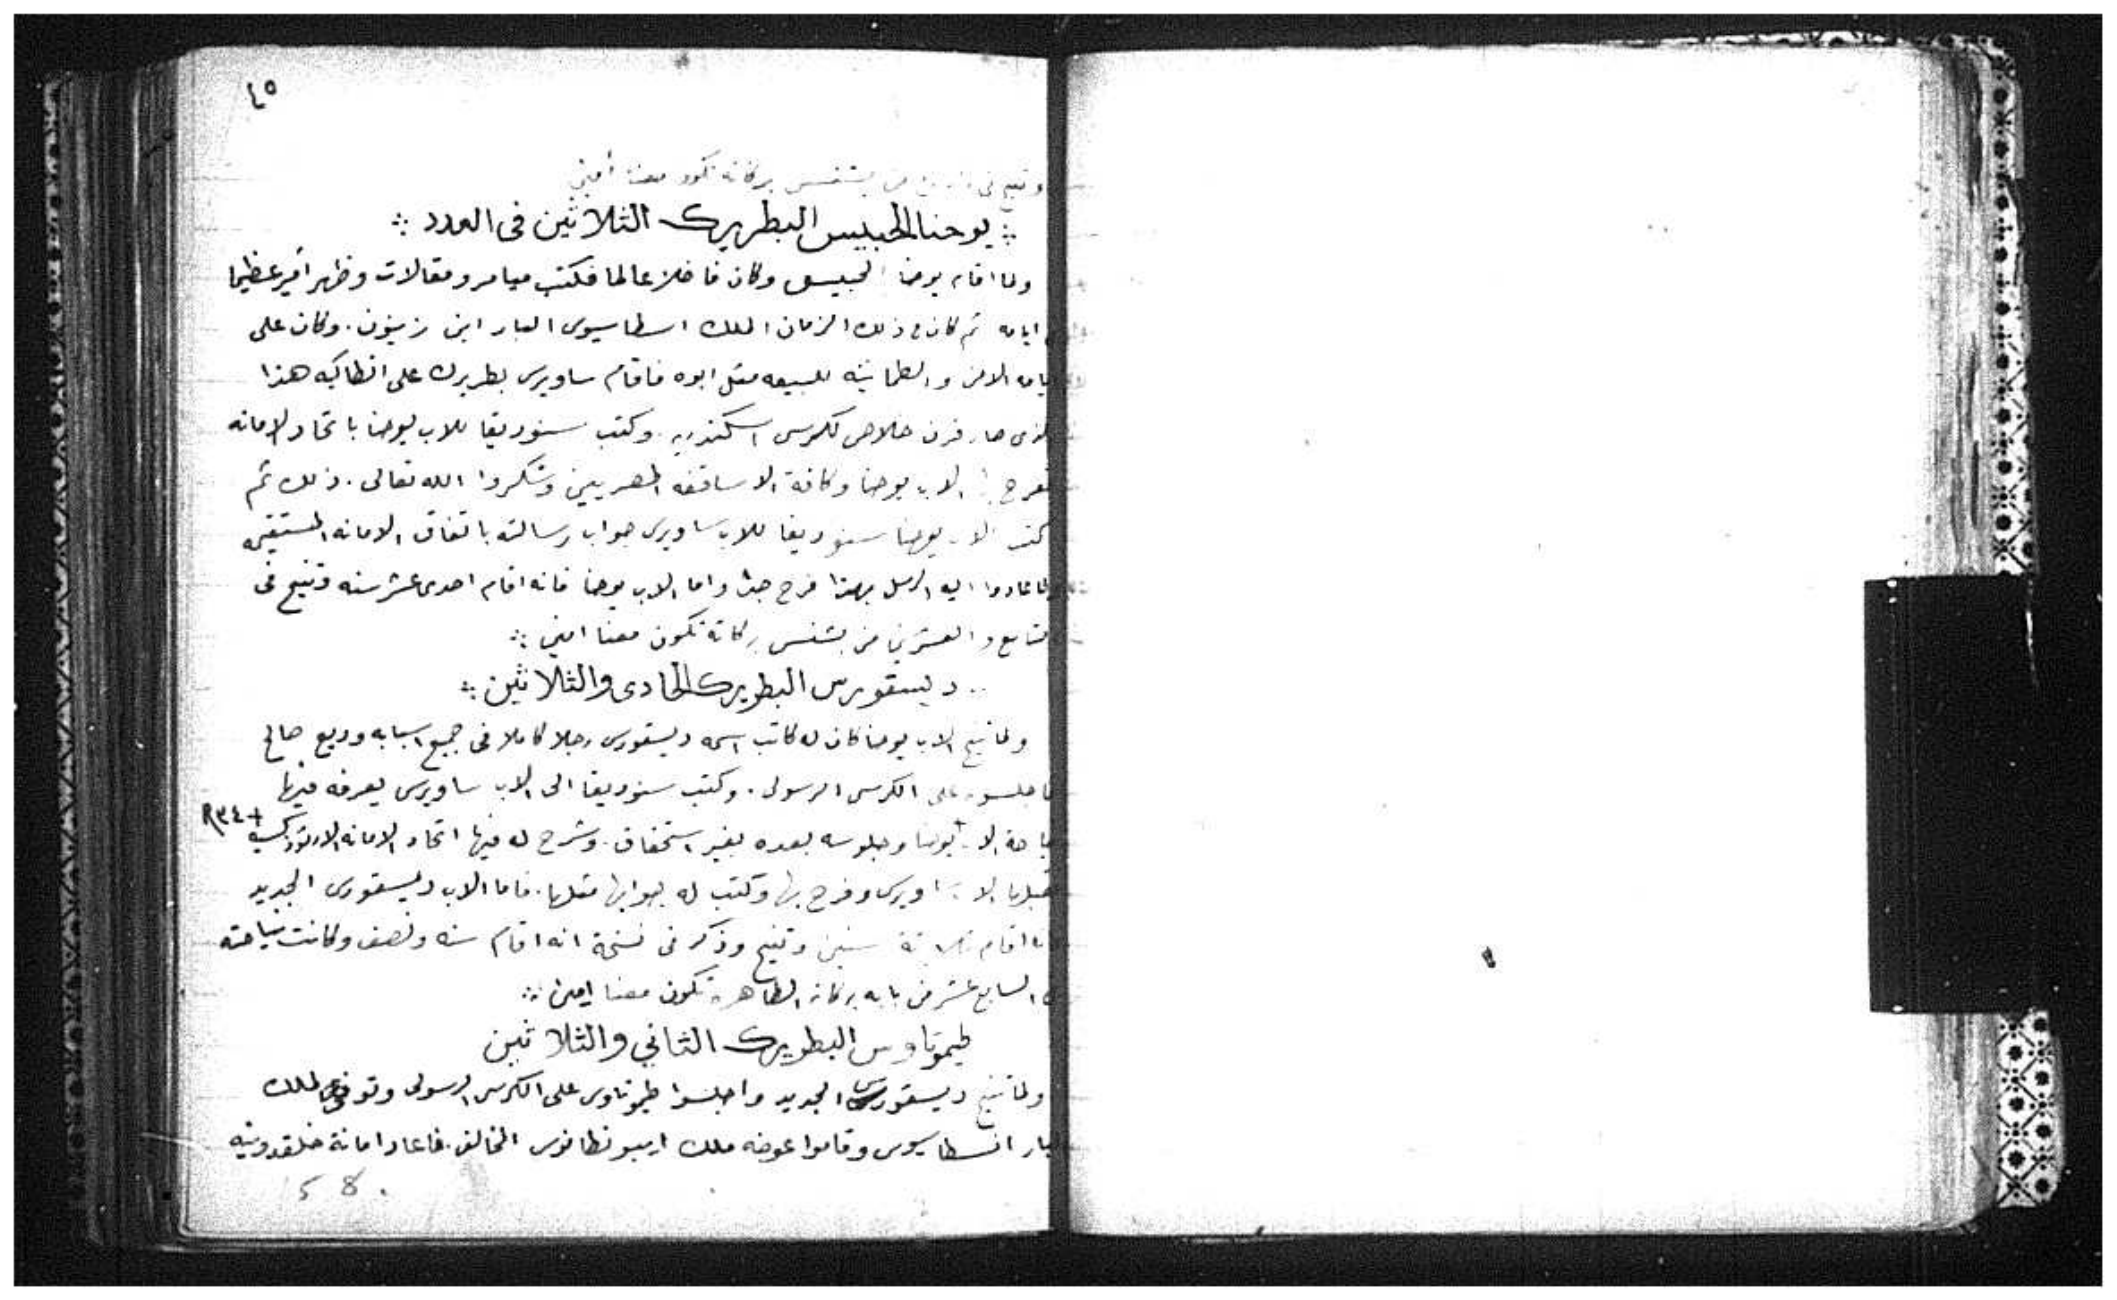 ٤٥
وتنيح فى من بشنس بركاته تكون معنا أمين
يوحنا الحبيس البطريرك الثلاثين فى العدد
ولما اقام يوحنا الحبيس وكان فاضلا عالما فكتب ميامر ومقالات وظهر عظيما
ايامه ثم كان فى ذلك الزمان الملك اسطاسيوس البار ابن زينون. وكان على
الامن والطمانينه للبيعه مثل ابوه فاقام ساويرس بطريرك على انطاكيه هذا
الذى صار قرن خلاص لكرسى اسكندريه. وكتب سنوديقا للاب يوحنا باتحاد الامانه
ففرح الاب يوحنا وكافة الاساقفه المصريين وشكروا الله تعالى. ذلك ثم
كتب الاب يوحنا سنوديقا للاب ساويرس جواب رسالته باتفاق الامانه المستقيمه
ولما عادوا اليه الرسل بهذا فرح جدا واما الاب يوحنا فانه اقام احدى عشر سنه وتنيح فى
السابع والعشرين من بشنس بركاته تكون معنا امين
ديسقورس البطريرك الحادى والثلاثين
ولما تنيح الاب يوحنا كان له كاتب اسمه ديسقورس رجلا كاملا فى جميع اسبابه وديع صالح
فاجلسوه على الكرسى الرسولى. وكتب سنوديقا الى الاب ساويرس يعرفه فيها
نياحة الاب يوحنا وجلوسه بعده بغير استحقاق. وشرح له فيها اتحاد الامانه الارتودكسيه + ٢٣٤
فقبلها الاب ساويرس وفرح بها وكتب له جوابها مثلها. فاما الاب ديسقورس الجديد
اقام ثلاثة سنين وتنيح وذكر فى نسخة انه اقام سنه ونصف وكانت نياحته
فى السابع عشر من بابه بركاته الطاهره تكون معنا امين
طيموتاوس البطريرك الثاني والثلاثين
ولما تنيح ديسقورس الجديد واجلسوا طيموتاوس على الكرسى الرسولى وتوفى الملك
البار انسطاسيوس وقاموا عوضه ملك المخالف. فاعاد امانة خلقدونيه
58.